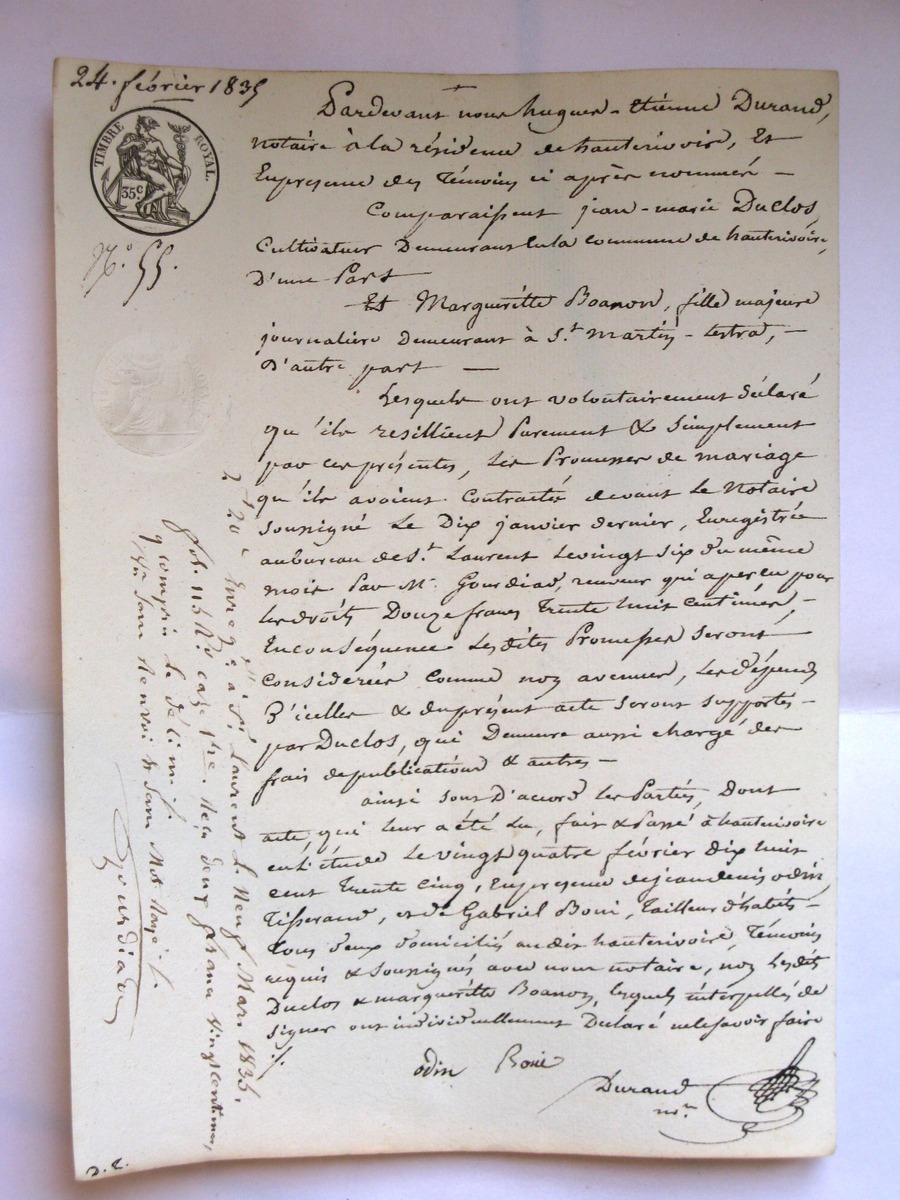 24. février 1835
TIMBRE ROYAL.
35.c
N.o 55.
Pardevant nous hugues-Etienne Durand,
notaire à la résidence de hauterivoir, Et
Enpresence des Témoins ci après nommés —
Comparaissent jean-marie Duclos,
Cultivateur Demeurant Enla commune de hauterivoire,
D'une Part
Et Margueritte Boanon, fille majeure
journalière Demeurant à S.t martin-lestra, —
D'autre part —
Lesquels ont volontairement Déclaré
qu'ils resillient Purement & Simplement
par ces présentes, Les Promesses de mariage
qu'ils avoient Contractés devant Le Notaire
Soussigné Le Dix janvier dernier, Enregistrée
aubureau de S.t Laurent Levingt Six du même
mois Par M.r Gourdiad, receveur qui aperçu pour
les droits Douze francs Trente huit Centimes, —
Enconséquence Lesdites Promesses Seront
Considerées Comme non avenues, Les dépends
D'icelles & duprésent acte Seront supportés —
par Duclos, qui Demeure aussi chargé des
frais depublications & autres —
ainsi Sont D'accord les Parties, Dont
acte, qui leur a été Lu, fait & Passé à hauterivoire
en L'étude Le vingt quatre février Dix huit
cent Trente Cinq, Enpresence dejean denis odin,
Tisserand, et de Gabriel Boni, Tailleur d'habits —
Tous deux domiciliés audit hauterivoire, Témoins
réquis & Soussignés avec nous notaire, non Lesdits
Duclos & margueritte Boanon, lesquels interpellés de
Signer ont individuellement Declaré nelesavoir faire
odin Boni
Durand
no.re
2 f 20 c Enreg.é à S.t Laurent le Neuf Mars 1835,
fol. 115 N.o case 1re. Reçu deux francs vingt centimes,
y compris le décime
sans renvoi & sans Mot rayé
Gourdiad
D. L.